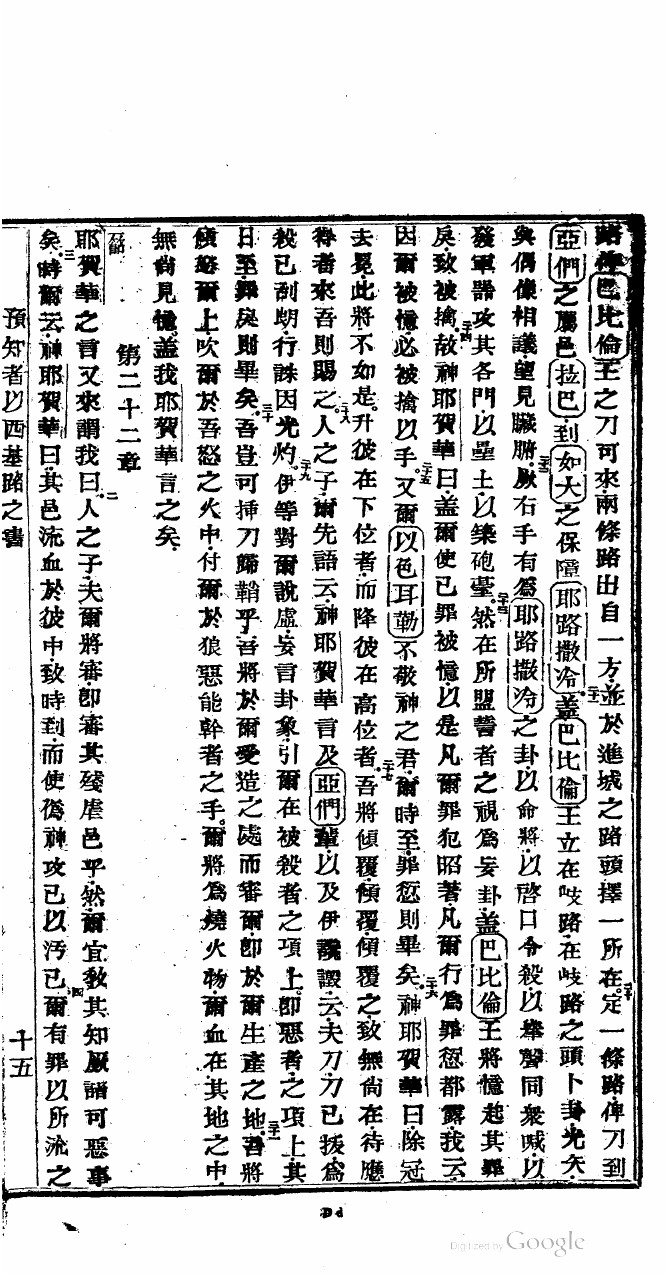 路俾巴比倫王之刀可來兩條路出自一方並於進城之路頭擇一所在二十定一條路俾刀到
亞們之屬邑拉巴到如大之保障耶路撒冷二十一蓋巴比倫王立在歧路在歧路之頭卜卦光矢
與偶像相議望見臟腑二十二厥右手有爲耶路撒冷之卦以命將以啓口令殺以舉聲同衆喊以
發軍器攻其各門以壘土以築砲臺二十三然在所盟誓者之視爲妄卦蓋巴比倫王將憶起其罪
戾致被擒二十四故神耶賀華曰蓋爾使己罪被憶以是凡爾罪犯昭著凡爾行爲罪愆都露我云
因爾被憶必被擒以手二十五又爾以色耳勒不敬神之君爾時至罪愆則畢矣二十六神耶賀華曰除冠
去冕此將不如是升彼在下位者而降彼在高位者二十七吾將傾覆傾覆傾覆之致無尙在待應
得者來吾則賜之二十八人之子爾先語云神耶賀華言及亞們輩以及伊譭謗云夫刀刀已拔爲
殺已刮朗行誅因光灼二十九伊等對爾說虛妄言卦象引爾在被殺者之項上卽惡者之項上其
日至罪戾則畢矣三十吾豈可挿刀歸鞘乎吾將於爾受造之處而審爾卽於爾生產之地三十一吾將
傾怒爾上吹爾於吾怒之火中付爾於狼惡能幹者之手三十二爾將爲燒火物爾血在其地之中
無尙見憶蓋我耶賀華言之矣
第二十二章
耶賀華之言又來謂我曰二人之子夫爾將審卽審其殘虐邑乎然爾宜敎其知厥諸可惡事
矣三時爾云神耶賀華曰其邑流血於彼中致時到而使僞神攻己以汚己四爾有罪以所流之
預知者以西基路之書
十五
Dd
Digitized by Google